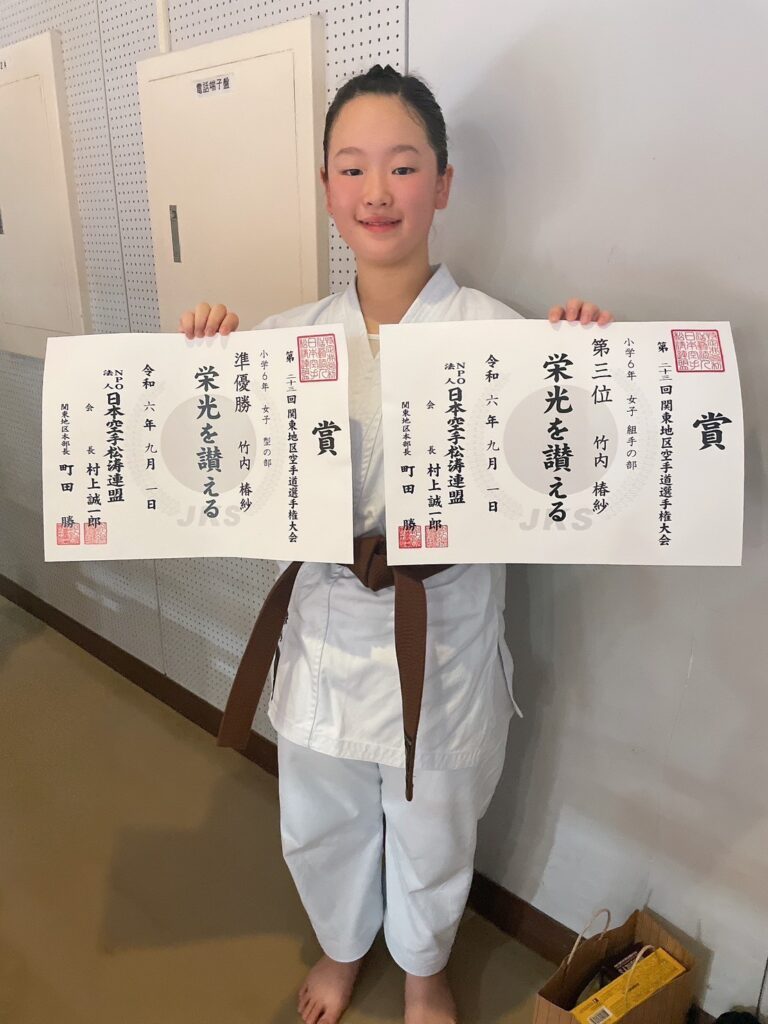 電話端子盤
賞
第二十三回 関東地区空手道選手権大会
小学6年 女子 型の部
準優勝 竹内 椿紗
栄光を讃える
令和六年九月一日
NPO法人 日本空手松涛連盟
会長 村上誠一郎
関東地区本部長 町田 勝
JKS
賞
第二十三回 関東地区空手道選手権大会
小学6年 女子 組手の部
第三位 竹内 椿紗
栄光を讃える
令和六年九月一日
NPO法人 日本空手松涛連盟
会長 村上誠一郎
関東地区本部長 町田 勝
JKS